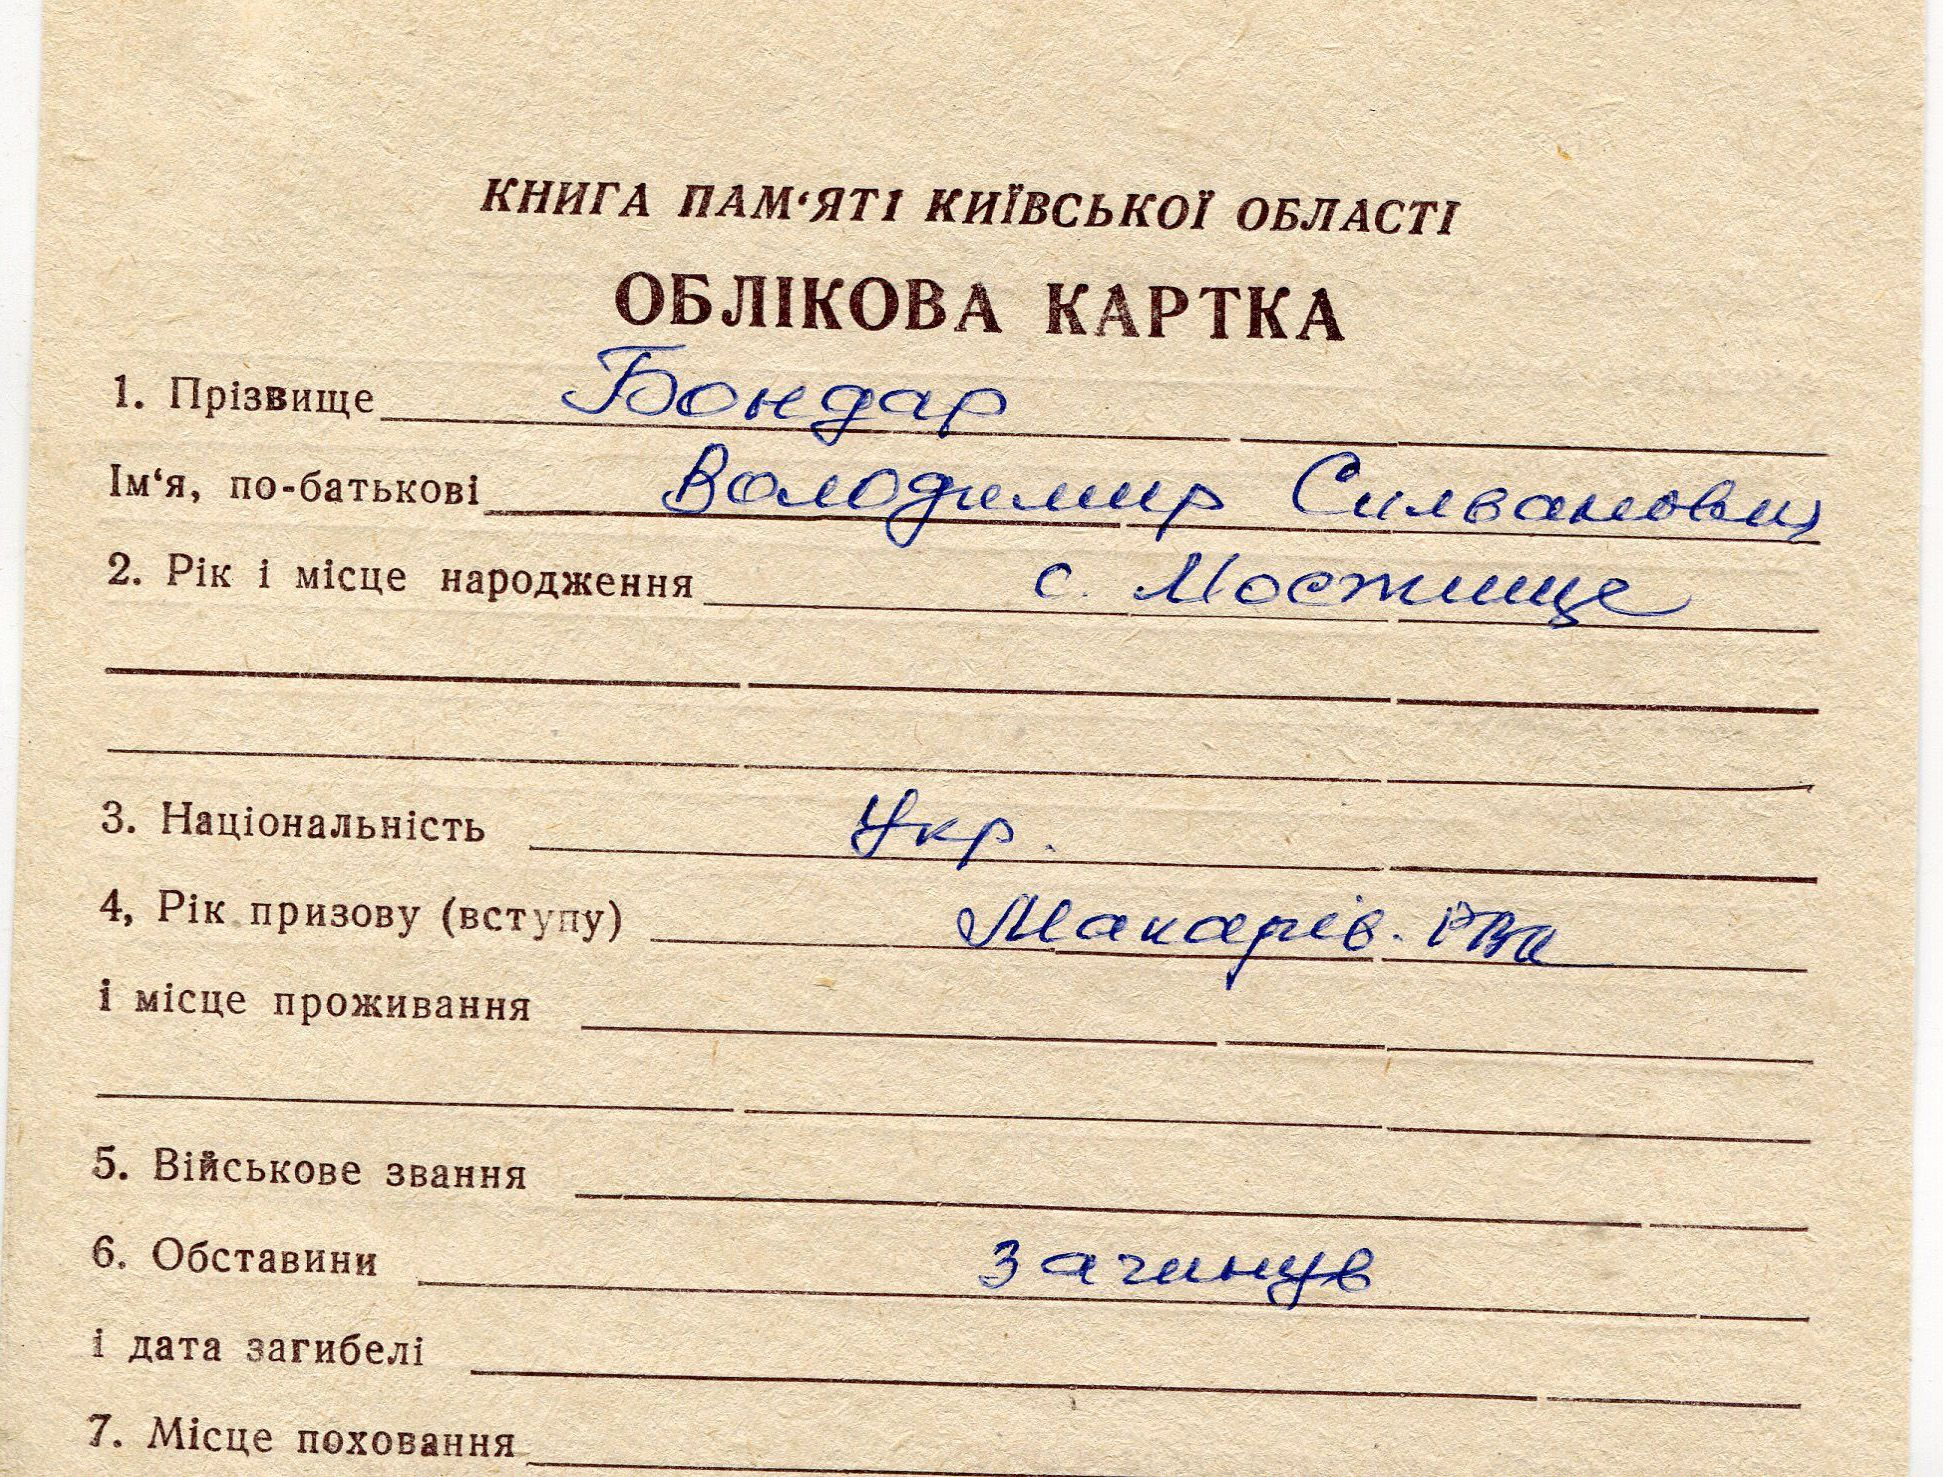 КНИГА ПАМ‘ЯТІ КИЇВСЬКОЇ ОБЛАСТІ
ОБЛІКОВА КАРТКА
1. Прізвище Бондар
Ім‘я, по-батькові Володимир Силванович
2. Рік і місце народження с. Мостище
3. Національність Укр.
4, Рік призову (вступу) Макарів. РВК
і місце проживання
5. Військове звання
6. Обставини Загинув
і дата загибелі
7. Місце поховання